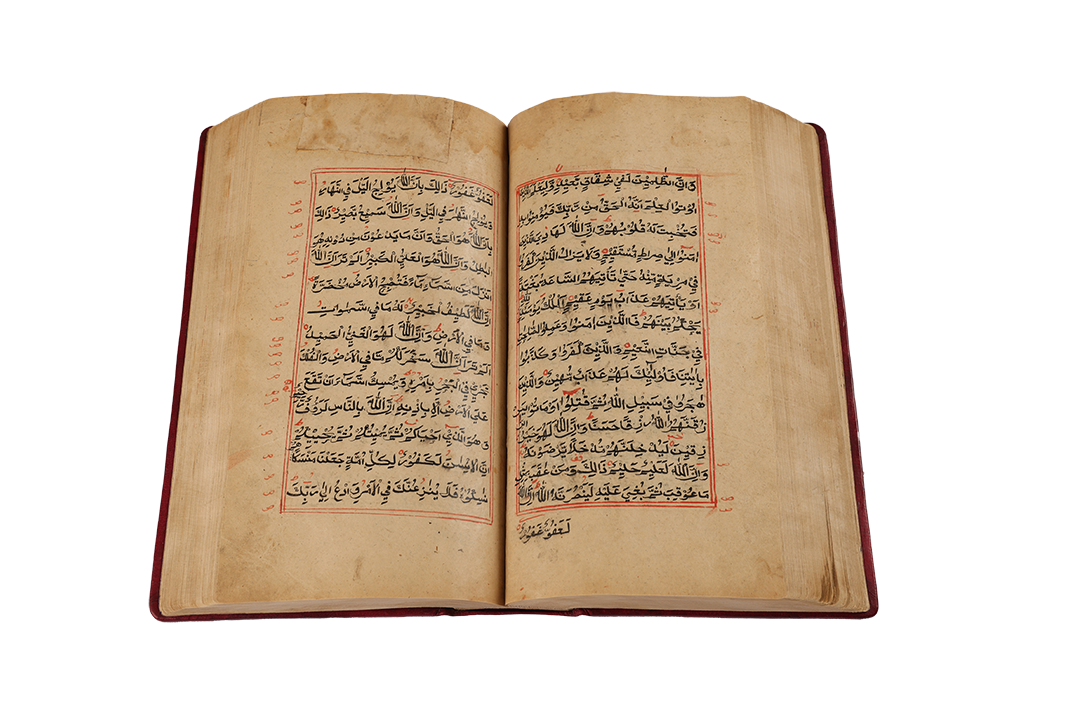 وَاِنَّ الظَّلِمِينَ لَفِي شِقَاقٍ بَعِيدٍ وَلِيَعْلَمَ الَّذِينَ
اُوتُوا الْعِلْمَ اَنَّهُ الْحَقُّ مِنْ رَبِّكَ فَيُؤْمِنُوا بِهِ
فَتُخْبِتَ لَهُ قُلُوبُهُمْ وَاِنَّ اللَّهَ لَهَادِ الَّذِينَ
اٰمَنُوا اِلٰى صِرَاطٍ مُسْتَقِيمٍ وَلَا يَزَالُ الَّذِينَ كَفَرُوا
فِي مِرْيَةٍ مِنْهُ حَتّٰى تَأْتِيَهُمُ السَّاعَةُ بَغْتَةً
اَوْ يَأْتِيَهُمْ عَذَابُ يَوْمٍ عَقِيمٍ اَلْمُلْكُ يَوْمَئِذٍ لِلَّهِ
يَحْكُمُ بَيْنَهُمْ فَالَّذِينَ اٰمَنُوا وَعَمِلُوا الصّٰلِحٰتِ
فِي جَنّٰتِ النَّعِيمِ وَالَّذِينَ كَفَرُوا وَكَذَّبُوا
بِاٰيٰتِنَا فَاُولٰئِكَ لَهُمْ عَذَابٌ مُهِينٌ وَالَّذِينَ
هَاجَرُوا فِي سَبِيلِ اللَّهِ ثُمَّ قُتِلُوا اَوْ مَاتُوا لَيَرْ
زُقَنَّهُمُ اللَّهُ رِزْقًا حَسَنًا وَاِنَّ اللَّهَ لَهُوَ خَيْرُ الرَّا
زِقِينَ لَيُدْخِلَنَّهُمْ مُدْخَلًا يَرْضَوْنَهُ
وَاِنَّ اللَّهَ لَعَلِيمٌ حَلِيمٌ ذٰلِكَ وَمَنْ عَاقَبَ بِمِثْلِ
مَا عُوقِبَ بِهِ ثُمَّ بُغِيَ عَلَيْهِ لَيَنْصُرَنَّهُ اللَّهُ اِنَّ اللَّهَ
لَعَفُوٌّ غَفُورٌ
لَعَفُوٌّ غَفُورٌ ذٰلِكَ بِاَنَّ اللَّهَ يُولِجُ الَّيْلَ فِي النَّهَارِ
وَيُولِجُ النَّهَارَ فِي الَّيْلِ وَاَنَّ اللَّهَ سَمِيعٌ بَصِيرٌ ذٰلِكَ
بِاَنَّ اللَّهَ هُوَ الْحَقُّ وَاَنَّ مَا يَدْعُونَ مِنْ دُونِهِ هُوَ
الْبَاطِلُ وَاَنَّ اللَّهَ هُوَ الْعَلِيُّ الْكَبِيرُ اَلَمْ تَرَ اَنَّ اللَّهَ
اَنْزَلَ مِنَ السَّمَاءِ مَاءً فَتُصْبِحُ الْاَرْضُ مُخْضَرَّةً
اِنَّ اللَّهَ لَطِيفٌ خَبِيرٌ لَهُ مَا فِي السَّمٰوَاتِ
وَمَا فِي الْاَرْضِ وَاِنَّ اللَّهَ لَهُوَ الْغَنِيُّ الْحَمِيدُ
اَلَمْ تَرَ اَنَّ اللَّهَ سَخَّرَ لَكُمْ مَا فِي الْاَرْضِ وَالْفُلْكَ
تَجْرِي فِي الْبَحْرِ بِاَمْرِهِ وَيُمْسِكُ السَّمَاءَ اَنْ تَقَعَ
عَلَى الْاَرْضِ اِلَّا بِاِذْنِهِ اِنَّ اللَّهَ بِالنَّاسِ لَرَؤُفٌ رَحِيمٌ
وَهُوَ الَّذِي اَحْيَاكُمْ ثُمَّ يُمِيتُكُمْ ثُمَّ يُحْيِيكُمْ
اِنَّ الْاِنْسَانَ لَكَفُورٌ لِكُلِّ اُمَّةٍ جَعَلْنَا مَنْسَكًا هُمْ
نَاسِكُوهُ فَلَا يُنَازِعُنَّكَ فِي الْاَمْرِ وَادْعُ اِلٰى رَبِّكَ